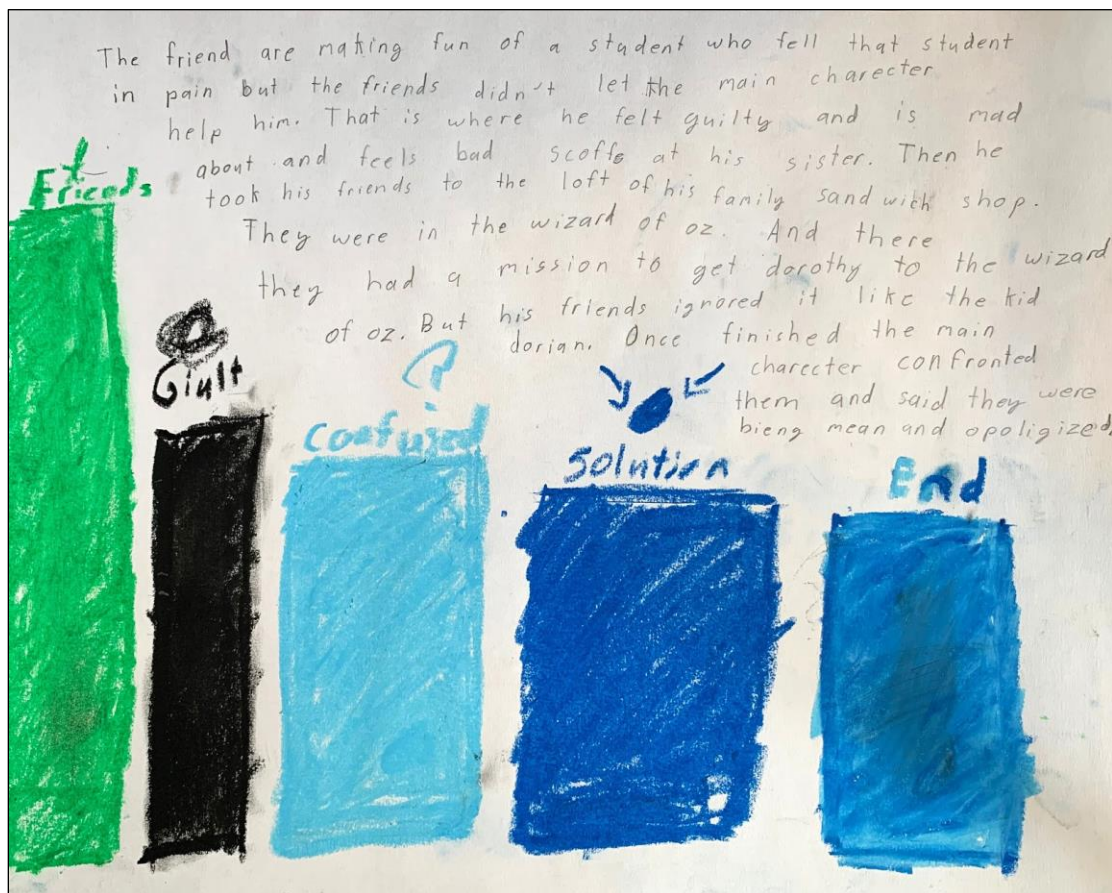 The friend are making fun of a student who fell that student
in pain but the friends didn't let the main charecter
help him. That is where he felt guilty and is mad
about and feels bad scoffs at his sister. Then he
took his friends to the loft of his family sandwich shop.
They were in the wizard of oz. And there
they had a mission to get dorothy to the wizard
of oz. But his friends ignored it like the kid
dorian. Once finished the main
charecter confronted
them and said they were
bieng mean and opoligized.
Friends
Giult
Confused
Solution
End